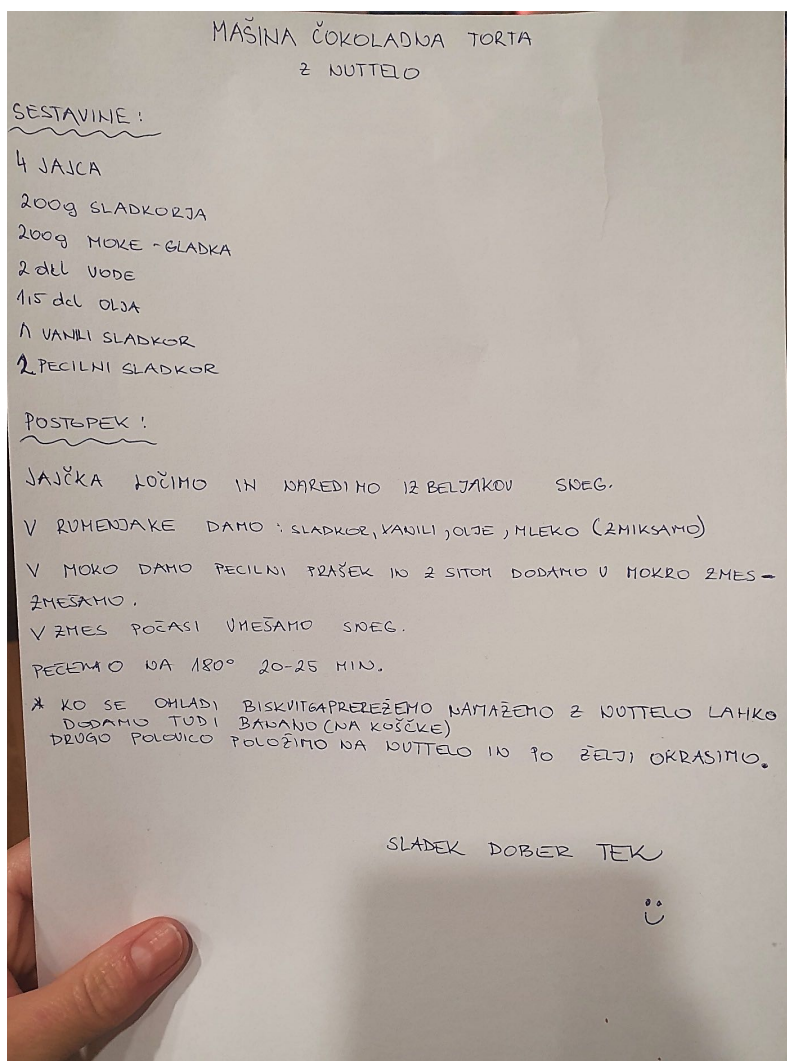 MAŠINA ČOKOLADNA TORTA
Z NUTTELO
SESTAVINE:
4 JAJCA
200g SLADKORJA
200g MOKE - GLADKA
2 dcl VODE
1,5 dcl OLJA
1 VANILI SLADKOR
2 PECILNI SLADKOR
POSTOPEK:
JAJČKA LOČIMO IN NAREDIMO IZ BELJAKOV SNEG.
V RUMENJAKE DAMO: SLADKOR, VANILI, OLJE, MLEKO (ZMIKSAMO)
V MOKO DAMO PECILNI PRAŠEK IN Z SITOM DODAMO V MOKRO ZMES-
ZMEŠAMO.
V ZMES POČASI VMEŠAMO SNEG.
PEČEMO NA 180° 20-25 MIN.
* KO SE OHLADI BISKVIT GA PREREŽEMO NAMAŽEMO Z NUTTELO LAHKO
DODAMO TUDI BANANO (NA KOŠČKE)
DRUGO POLOVICO POLOŽIMO NA NUTTELO IN PO ŽELJI OKRASIMO.
SLADEK DOBER TEK